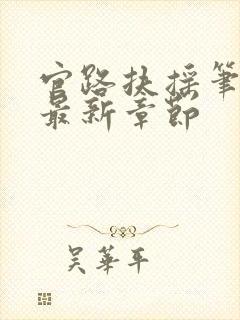 官路扶摇笔
最新章节
吴华平